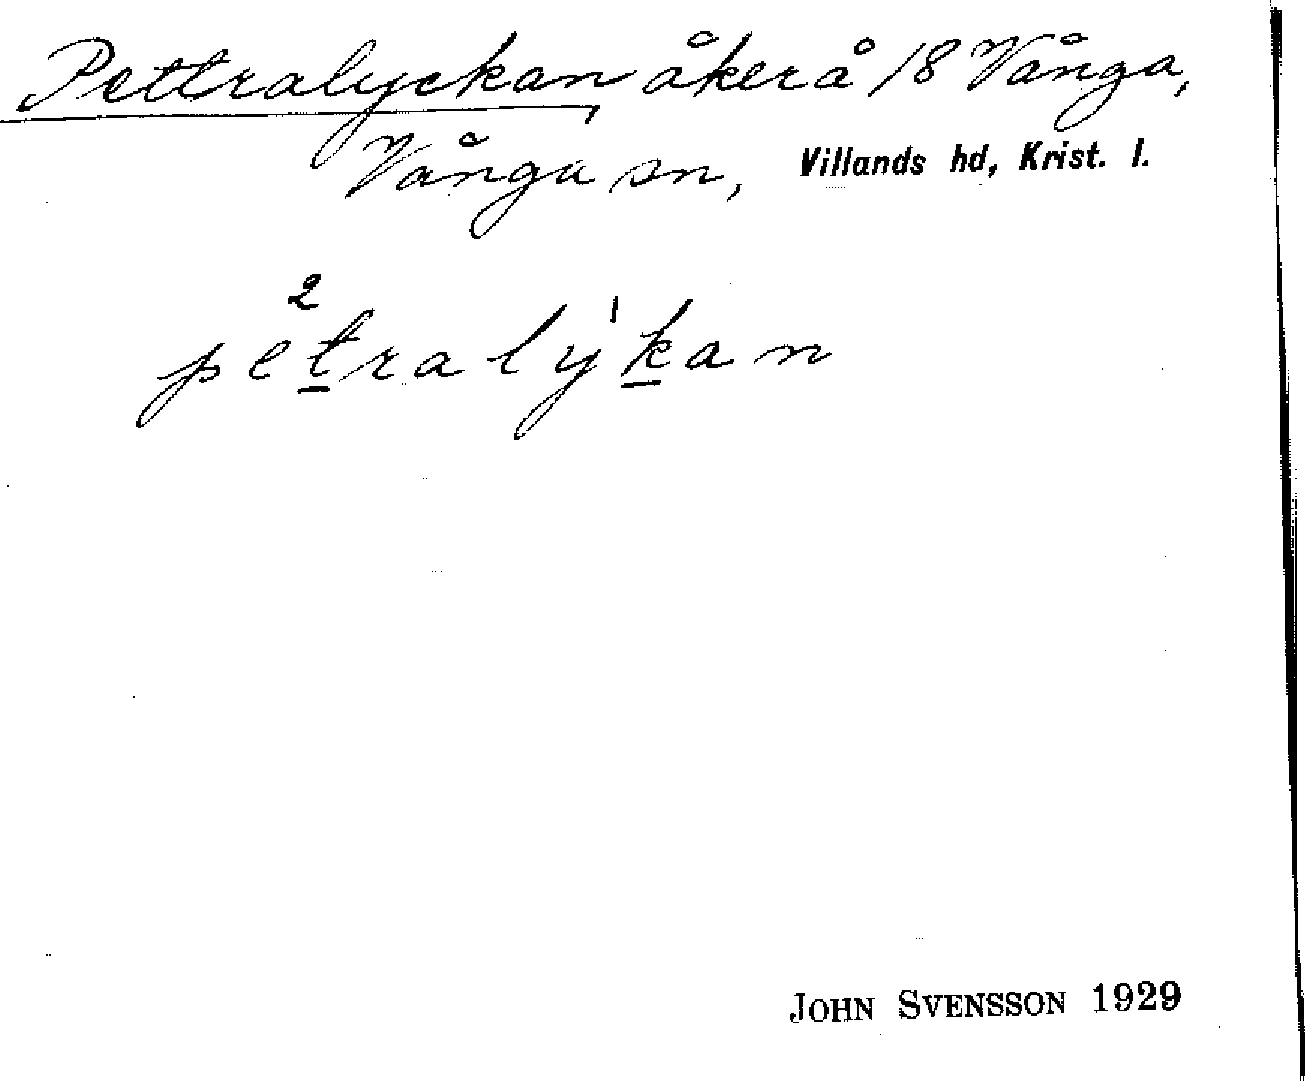 Pettralyckan, åker å 18 Vånga,
Vånga sn, Villands hd, Krist. l.
pe²tralý¹kan
JOHN SVENSSON 1929